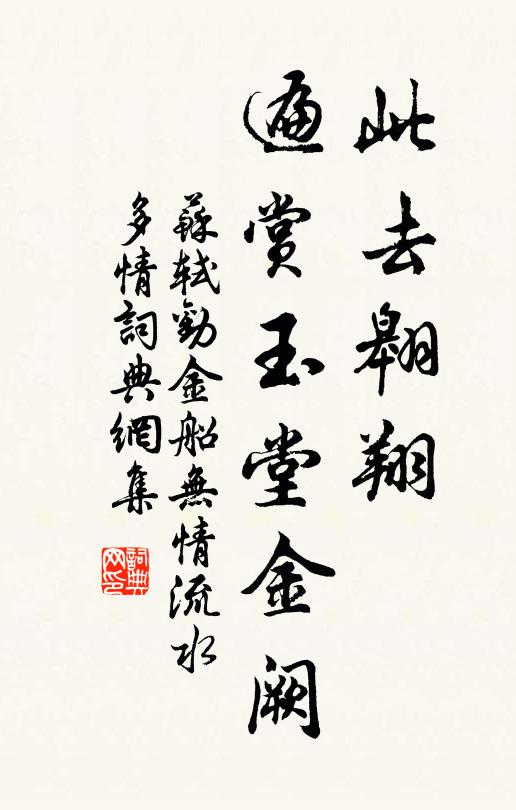 此去翱翔
遍賞玉堂金闕
蘇軾勸金船無情流水
多情詞典網集
詞典
网印